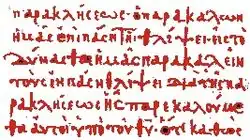 παρακλήσεως· ὁ παρακαλῶν
ἡμᾶς ἐπὶ πάσῃ τῇ θλίψει· εἰς τὸ
δύνασθαι ἡμᾶς παρακαλεῖν
τοὺς ἐν πάσῃ θλίψει διὰ τῆς πα
ρακλήσεως ἧς παρεκαλούμε
θα αὐτοὶ ὑπὸ τοῦ θυ· ὅτι καθὼ